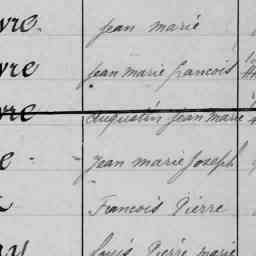 vre. Jean Marie
vre Jean Marie Francois
vre Augustin Jean Marie
e - Jean Marie Joseph
Francois Pierre
Louis Pierre Marie